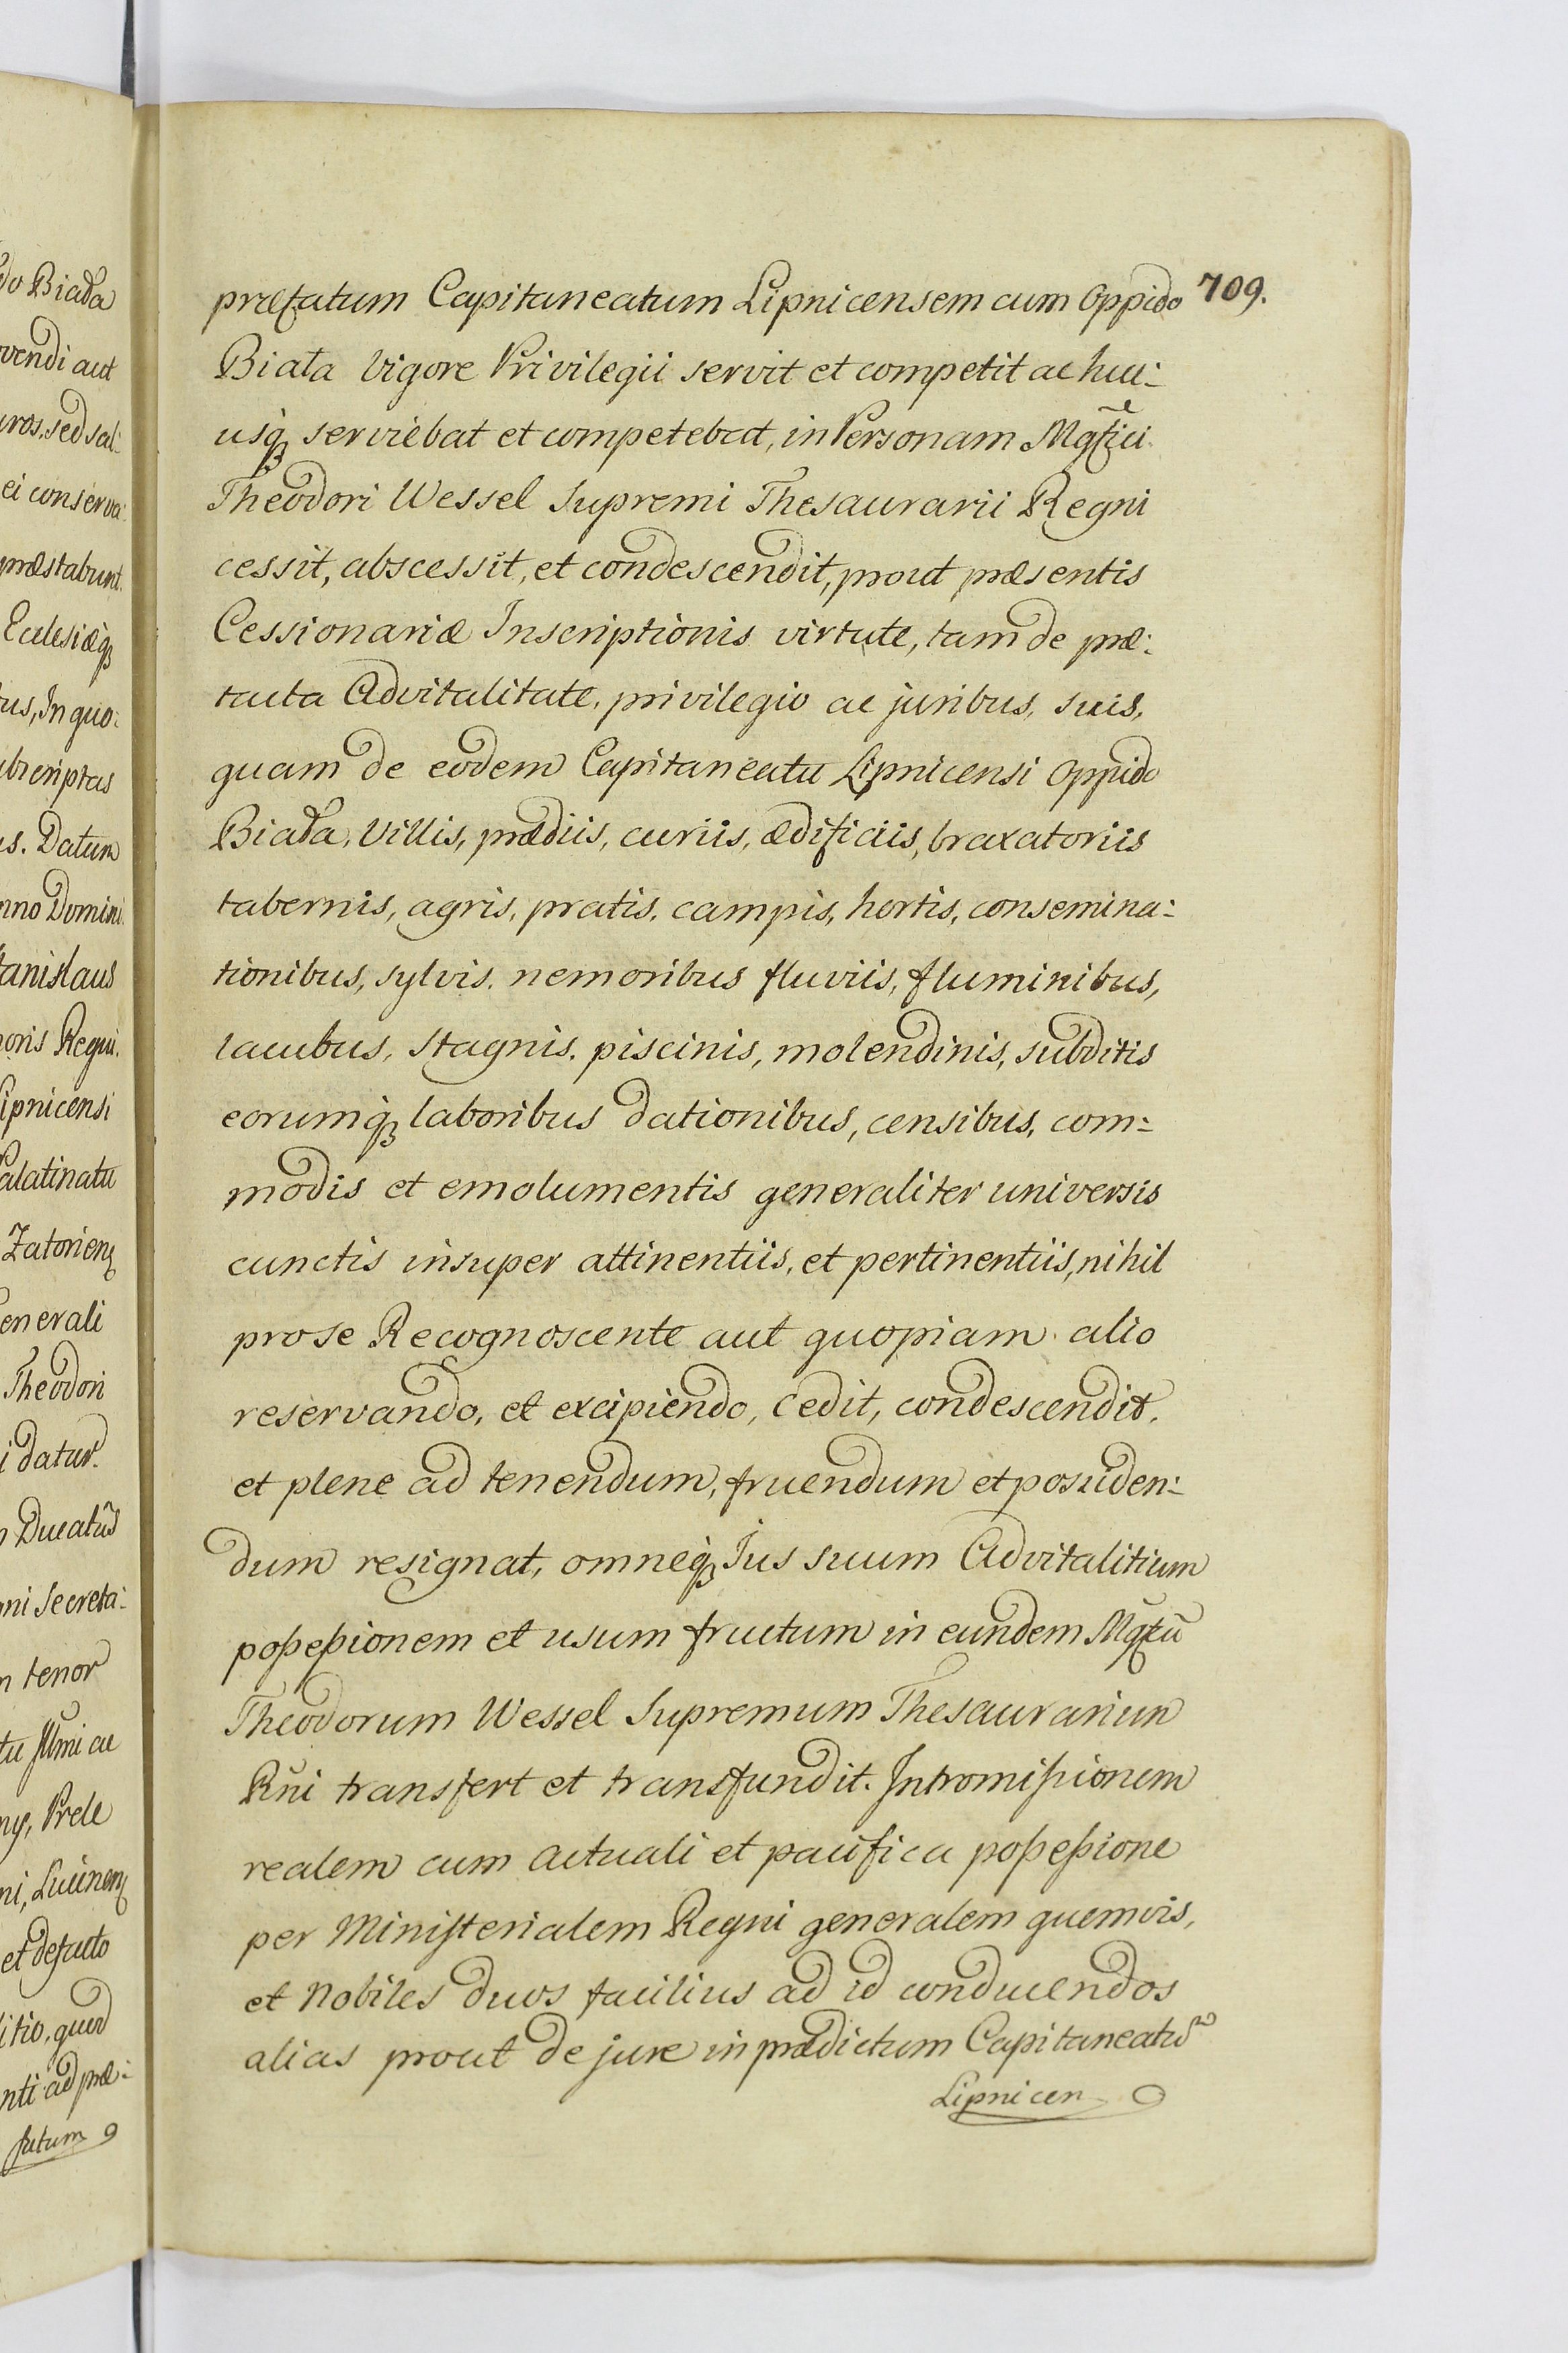 do Biała
vendi aut
uros, sed sal:
ei conserva:
præstabunt.
Ecclesiæq
tus, In quo:
ubscriptas
us. Datum
nno Domini
tanislaus
noris Regni.
Lipnicensi
Palatinatu
Zatorien
enerali
Theodori
i datur.
Ducatûs
ni Secreta:
n tenor
et defacto
itio, quod
nti ad præ:
fatum
709.
præfatum Capitaneatum Lipnicensem cum Oppido
Biała Vigore Privilegii servit et competit ac huc:
usq serviebat et competebat, in Personam Mgfici
Theodori Wessel Supremi Thesaurarii Regni
cessit, abscessit, et condescendit, prout præsentis
Cessionariæ Inscriptionis virtute, tam de præ:
tacta Advitalitate, privilegio ac juribus, suis,
quam de eodem Capitaneatu Lipnicensi Oppido
Biała, Villis, prædiis, curiis, ædificiis, braxatoriis
tabernis, agris, pratis, campis, hortis, consemina:
tionibus, sylvis, nemoribus fluviis, fluminibus,
lacubus, stagnis, piscinis, molendinis, subditis
eorumq laboribus dationibus, censibus, com:
modis et emolumentis generaliter universis
cunctis insuper attinentiis, et pertinentiis, nihil
pro se Recognoscente aut quopiam alio
reservando, et excipiendo, cedit, condescendit,
et plene ad tenendum, fruendum et posiden:
dum resignat, omneq Jus suum Advitalitium
poßeßionem et usum fructum in eundem Mgfcũ
Theodorum Wessel Supremum Thesaurarium
Rñi transfert et transfundit. Intromißionem
realem cum actuali et pacifica poßeßione
per Ministerialem Regni generalem quemvis,
et Nobiles duos facilius ad id conducendos
alias prout de jure in prædictum Capitaneatũ
Lipnicen